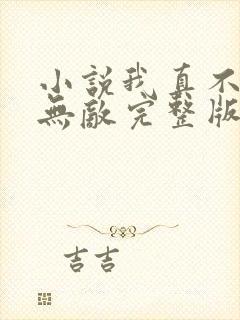 小説我真不
無敵完整版
吉吉